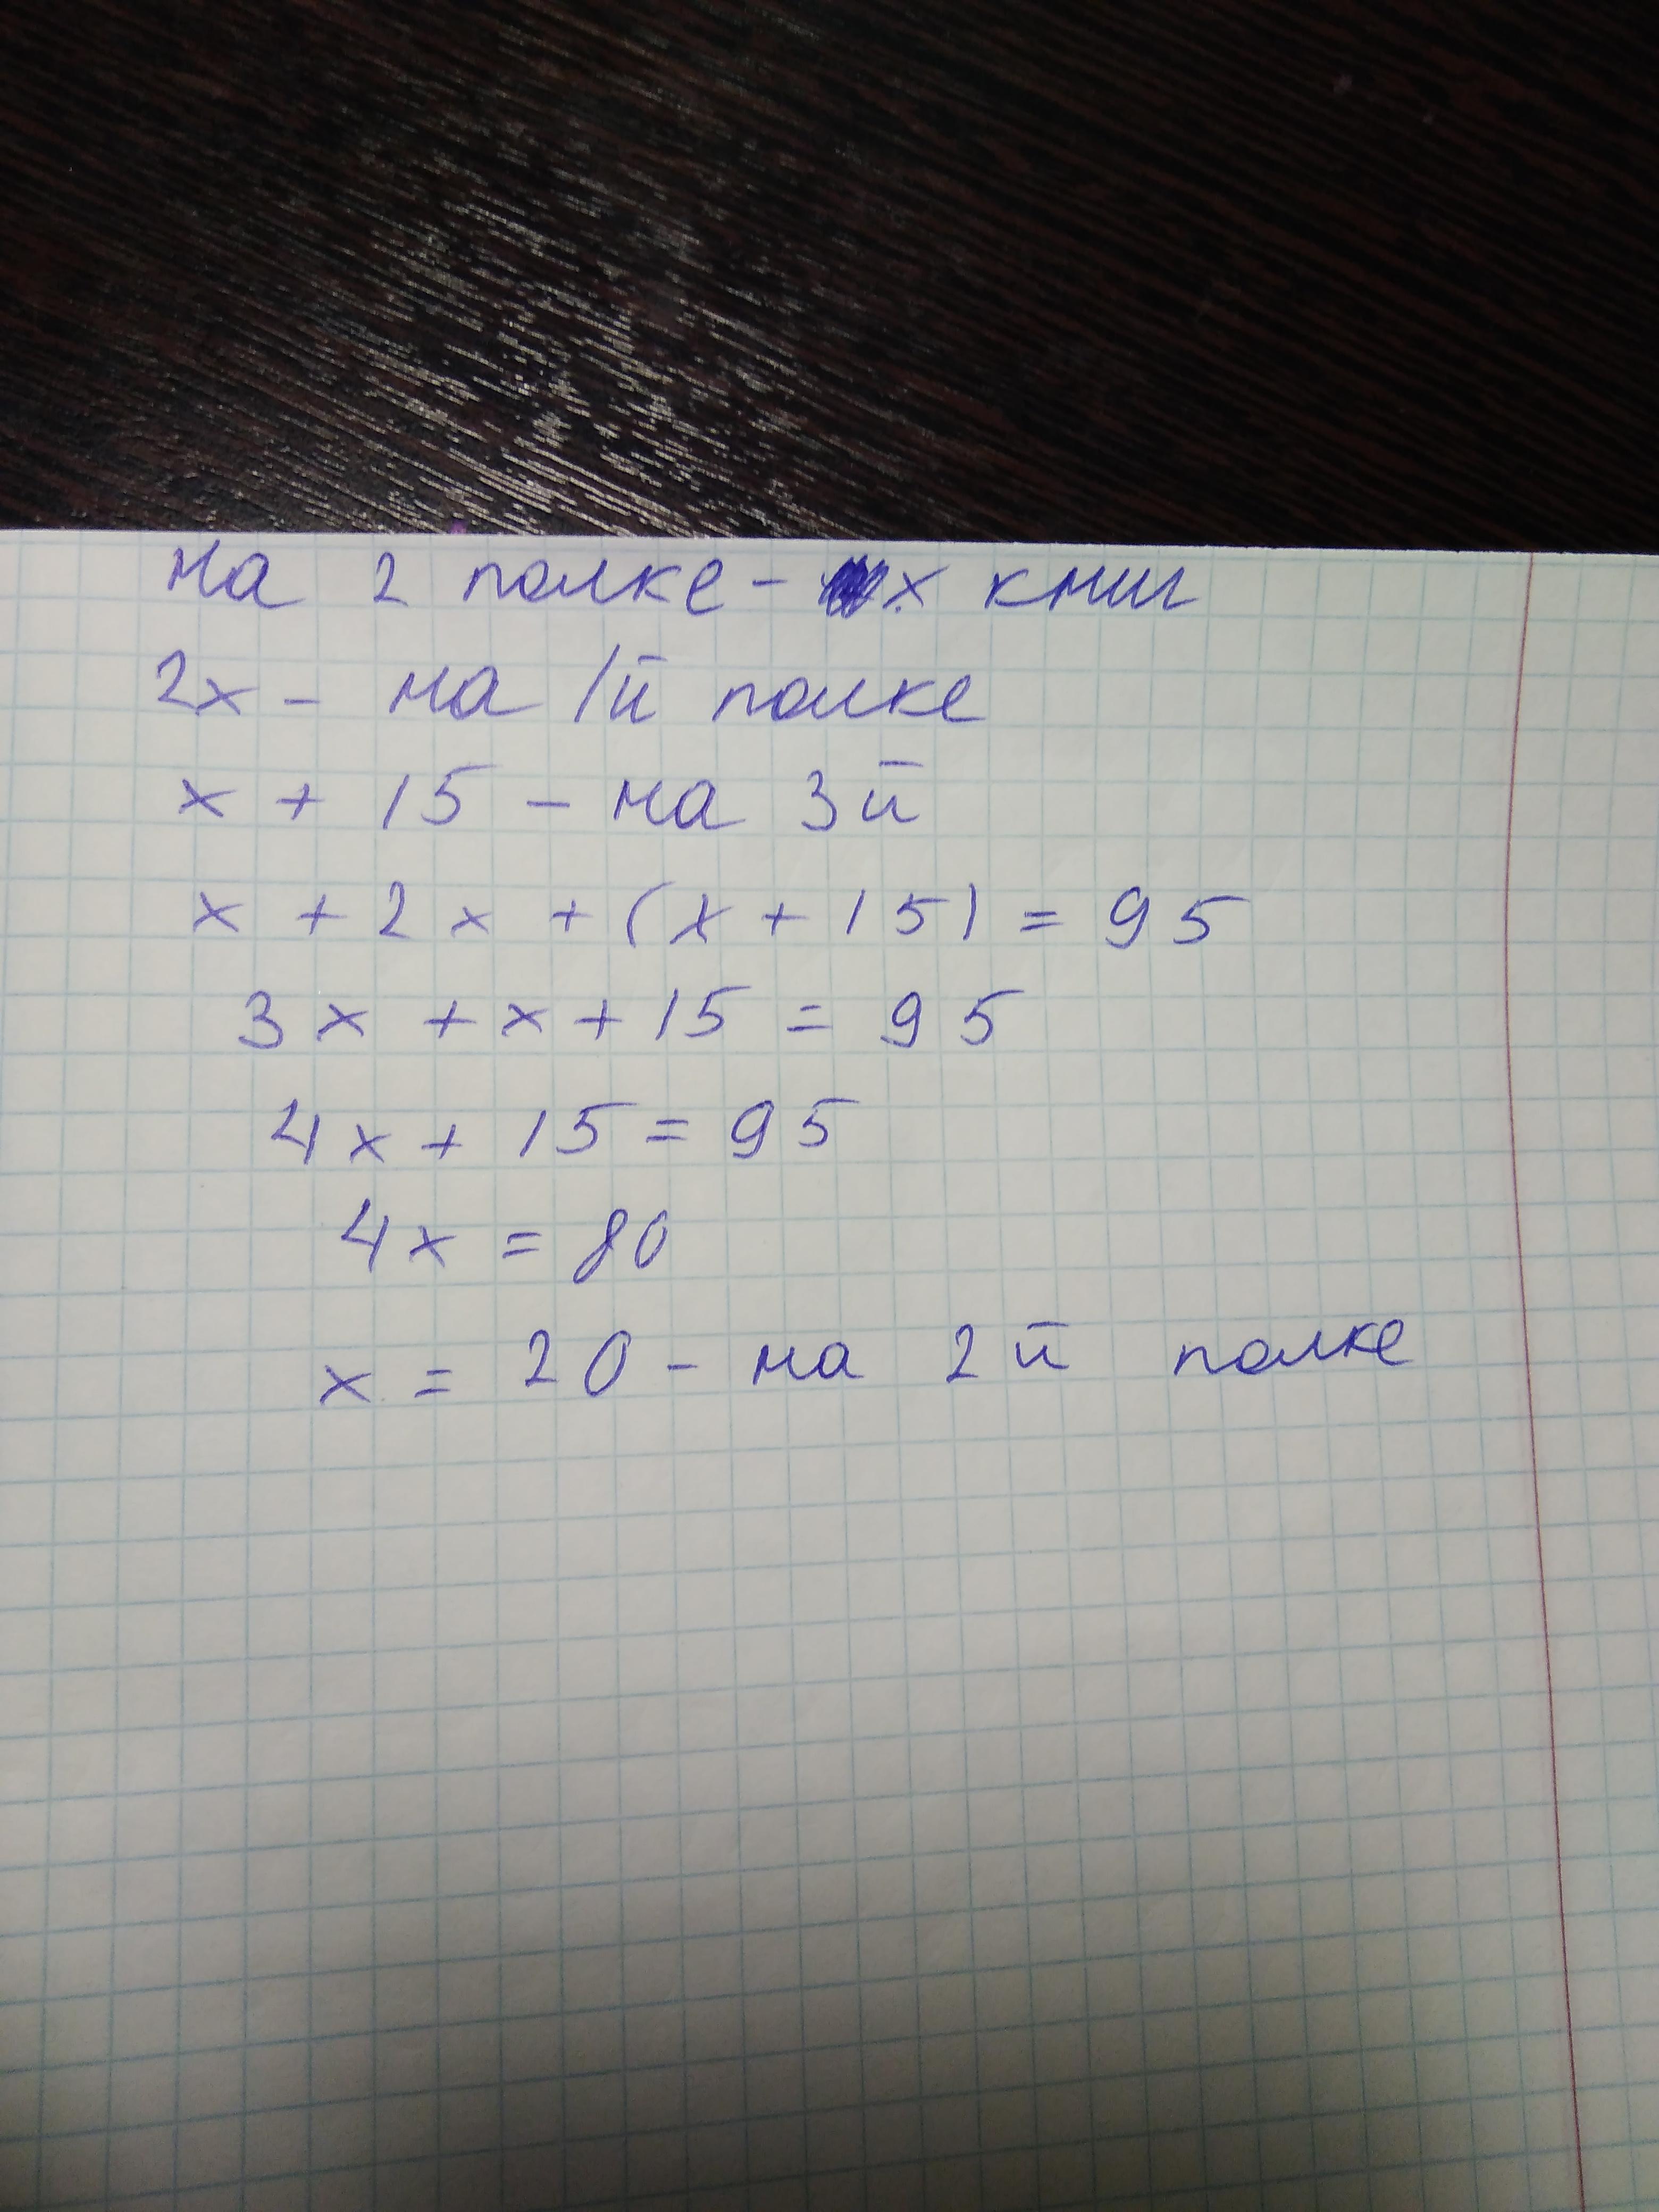 На 2 полке - х книг
2х - на 1й полке
х + 15 - на 3й
х + 2х + (х + 15) = 95
3х + х + 15 = 95
4х + 15 = 95
4х = 80
х = 20 - на 2й полке